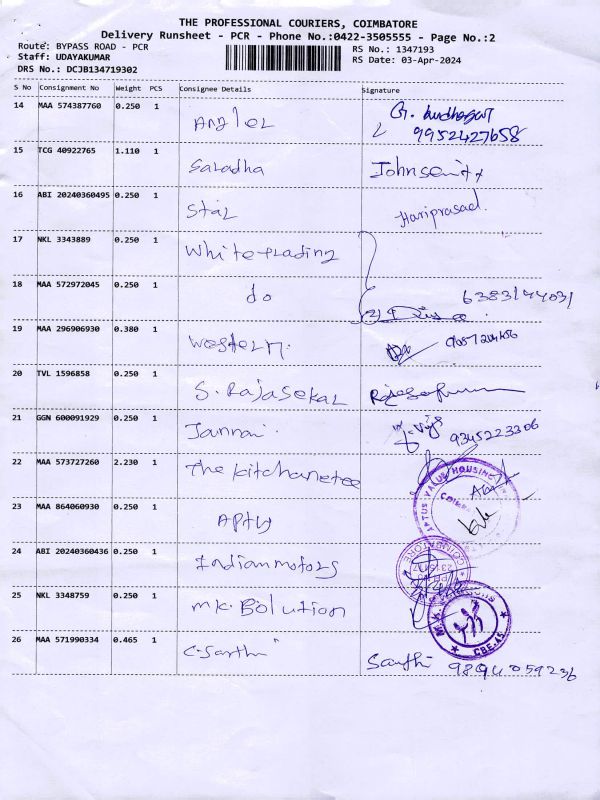 THE PROFESSIONAL COURIERS, COIMBATORE
Delivery Runsheet - PCR - Phone No.:0422-3505555 - Page No.:2
Route: BYPASS ROAD - PCR RS No.: 1347193
Staff: UDAYAKUMAR RS Date: 03-Apr-2024
DRS No.: DCJB134719302
S No Consignment No Weight PCS Consignee Details Signature
14 MAA 574387760 0.250 1 Angler
9952427658
15 TCG 40922765 1.110 1 Saradha
16 ABI 20240360495 0.250 1 Star Hariprasad.
17 NKL 3343889 0.250 1 White trading
18 MAA 572972045 0.250 1 do
19 MAA 296906930 0.380 1 Western.
20 TVL 1596858 0.250 1 S. Rajasekar
21 GGN 600091929 0.250 1 Jannai 9345223306
22 MAA 573727260 2.230 1 The kitchanetee
APTUS VALUE HOUSING
23 MAA 864060930 0.250 1
24 ABI 20240360436 0.250 1 Indian motors
25 NKL 3348759 0.250 1 M.K. Bolution
CBE-45
26 MAA 571990334 0.465 1 Santhi 9894059236